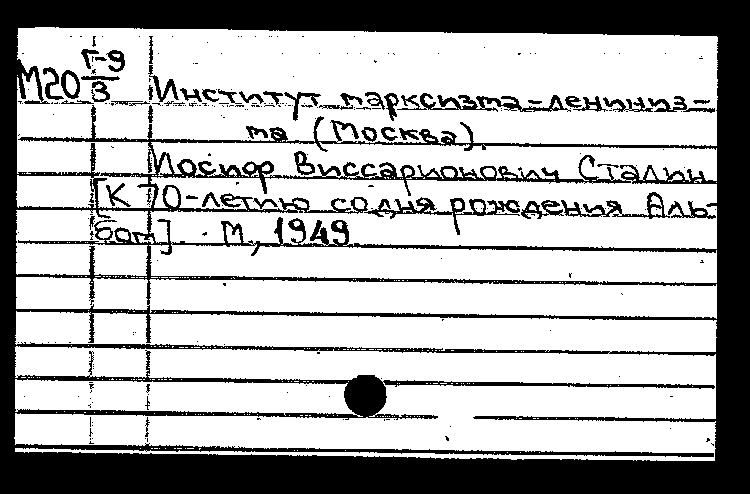 Г-9
М20 3 Институт марксизма-лениниз-
ма (Москва).
Иосиф Виссарионович Сталин
[К 70-летию со дня рождения Аль-
бом]. - М., 1949.